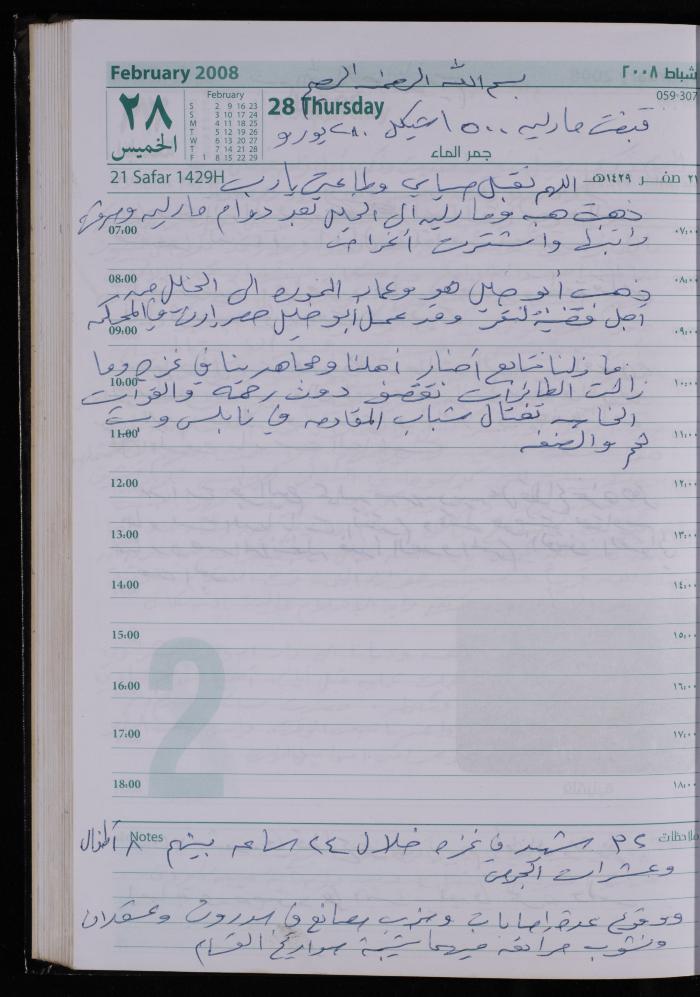 بسم الله الرحمن الرحيم
February 2008
شباط ٢٠٠٨
059-307
٢٨
الخميس
February
S 2 9 16 23
S 3 10 17 24
M 4 11 18 25
T 5 12 19 26
W 6 13 20 27
T 7 14 21 28
F 1 8 15 22 29
28 Thursday
قبضت مارلين ١٥٠٠ شيكل ٢٨٠ يورو
جمر الماء
21 Safar 1429H
٢١ صفر ١٤٢٩هـ
اللهم تقبل صيامي وطاعتي يا رب
ذهبت هبه ومارلين الى الخليل بعد دوام مارلين
07:00
٠٧:٠٠
واشترت أغراض
08:00
٠٨:٠٠
ذهب أبو خليل هو وعماد الى الخليل من
أجل قضية وقد عمل أبو خليل حصر إرث في المحكمه
09:00
٠٩:٠٠
ما زلنا نتابع أخبار أهلنا ومجاهدينا في غزه وما
10:00
١٠:٠٠
زالت الطائرات تقصف دون رحمة والقوات
الخاصه تغتال شباب المقاومه في نابلس وبيت
11:00
١١:٠٠
لحم والضفه
12:00
١٢:٠٠
13:00
١٣:٠٠
14:00
١٤:٠٠
15:00
١٥:٠٠
16:00
١٦:٠٠
17:00
١٧:٠٠
18:00
١٨:٠٠
2
Notes
ملاحظات
٣٢ شهيد في غزه خلال ٢٤ ساعه بينهم ٨ أطفال
وعشرات الجرحى
ووقوع عدة إصابات وضرب مصانع في سديروت وعسقلان
ونشوب حرائق فيهما نتيجة صواريخ القسام